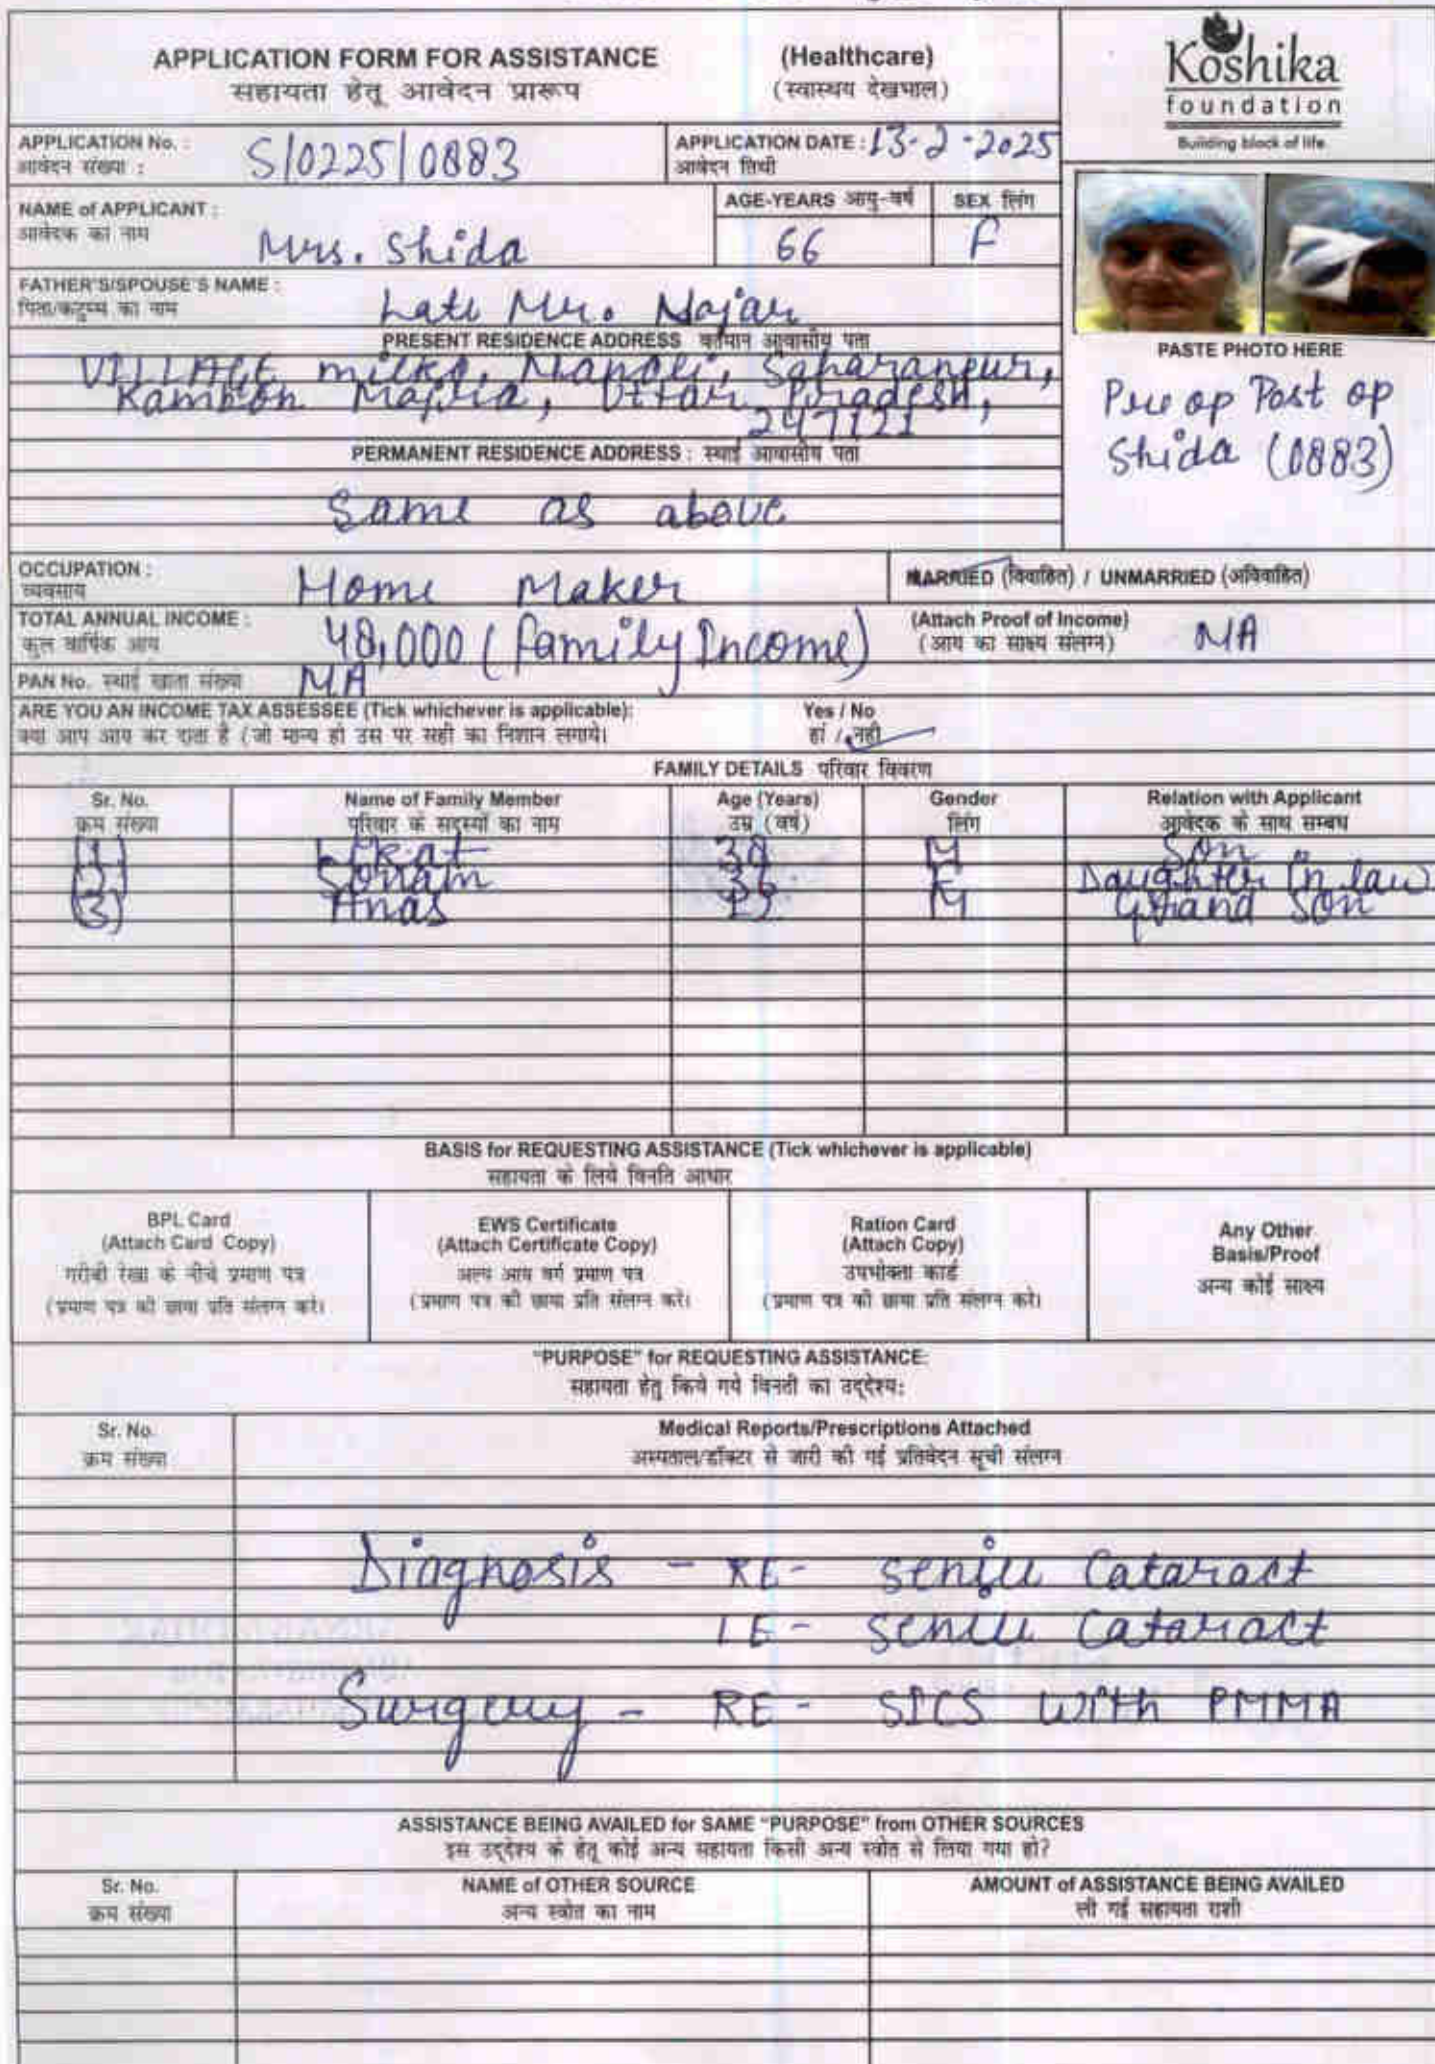 APPLICATION FORM FOR ASSISTANCE (Healthcare)
सहायता हेतू आवेदन प्रारूप (स्वास्थय देखभाल)
Koshika
foundation
Building block of life
APPLICATION No. :
आवेदन संख्या :
S/0225/0883
APPLICATION DATE : 13-2-2025
आवेदन तिथी
NAME of APPLICANT :
आवेदक का नाम
Mrs. Shida
AGE-YEARS आयु-वर्ष
66
SEX लिंग
F
FATHER'S/SPOUSE'S NAME :
पिता/कटुम्म का नाम
Late Mr. Najar
PRESENT RESIDENCE ADDRESS वर्तमान आवासीय पता
VILLAGE Saharanpur,
Majria, Uttar Pradesh,
247121
PERMANENT RESIDENCE ADDRESS : स्थाई आवासीय पता
Same as above
PASTE PHOTO HERE
Pre op Post op
Shida (0883)
OCCUPATION :
व्यवसाय
Home Maker
MARRIED (विवाहित) / UNMARRIED (अविवाहित)
TOTAL ANNUAL INCOME :
कुल वार्षिक आय
48,000 (family Income)
(Attach Proof of Income)
(आय का साक्ष्य संलग्न)
NA
PAN No. स्थाई खाता संख्या NA
ARE YOU AN INCOME TAX ASSESSEE (Tick whichever is applicable): Yes / No
क्या आप आय कर दाता है (जो मान्य हो उस पर सही का निशान लगाये। हां / नही
FAMILY DETAILS परिवार विवरण
Sr. No. Name of Family Member Age (Years) Gender Relation with Applicant
क्रम संख्या परिवार के सदस्यों का नाम उम्र (वर्ष) लिंग आवेदक के साथ सम्बध
(1) M Son
(2) Sonam 36 F Daughter in law
(3) Anas M Grand Son
BASIS for REQUESTING ASSISTANCE (Tick whichever is applicable)
सहायता के लिये विनति आधार
BPL Card
(Attach Card Copy)
गरीबी रेखा के नीचे प्रमाण पत्र
(प्रमाण पत्र की छाया प्रति संलग्न करे।
EWS Certificate
(Attach Certificate Copy)
अल्प आय वर्ग प्रमाण पत्र
(प्रमाण पत्र की छाया प्रति संलग्न करे।
Ration Card
(Attach Copy)
उपभोक्ता कार्ड
(प्रमाण पत्र की छाया प्रति संलग्न करे।
Any Other
Basis/Proof
अन्य कोई साक्ष्य
"PURPOSE" for REQUESTING ASSISTANCE:
सहायता हेतु किये गये विनती का उद्देश्य:
Sr. No. Medical Reports/Prescriptions Attached
क्रम संख्या अस्पताल/डॉक्टर से जारी की गई प्रतिवेदन सूची संलग्न
Diagnosis - RE- Senile Cataract
LE- Senile Cataract
Surgery - RE - SICS with PMMA
ASSISTANCE BEING AVAILED for SAME "PURPOSE" from OTHER SOURCES
इस उद्देश्य के हेतू कोई अन्य सहायता किसी अन्य स्त्रोत से लिया गया हो?
Sr. No. NAME of OTHER SOURCE AMOUNT of ASSISTANCE BEING AVAILED
क्रम संख्या अन्य स्त्रोत का नाम ली गई सहायता राशी